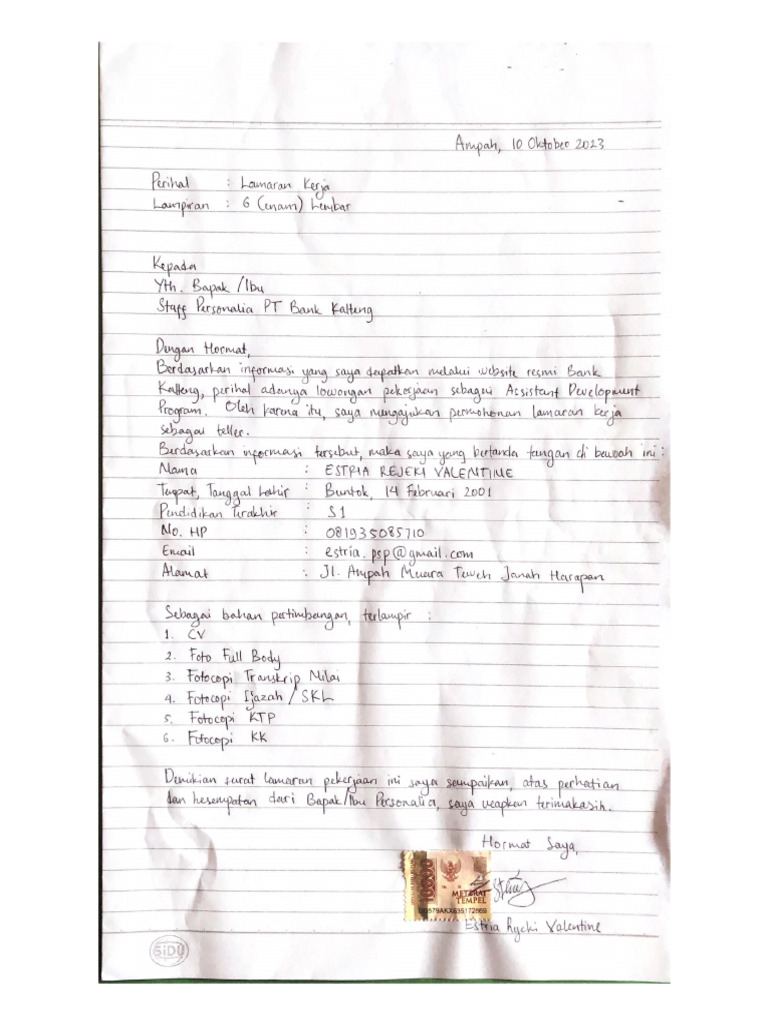 Ampah, 10 Oktober 2023
Perihal : Lamaran Kerja
Lampiran : 6 (enam) Lembar
Kepada
Yth. Bapak/Ibu
Staff Personalia PT Bank Kalteng
Dengan Hormat,
Berdasarkan informasi yang saya dapatkan melalui website resmi Bank
Kalteng, perihal adanya lowongan pekerjaan sebagai Assistant Development
Program. Oleh karena itu, saya mengajukan permohonan lamaran kerja
sebagai teller.
Berdasarkan informasi tersebut, maka saya yang bertanda tangan di bawah ini :
Nama : ESTRIA REJEKI VALENTINE
Tempat, Tanggal Lahir : Buntok, 14 Februari 2001
Pendidikan Terakhir : S1
No. HP : 081935085710
Email : estria.psp@gmail.com
Alamat : Jl. Ampah Muara Teweh Janah Harapan
Sebagai bahan pertimbangan, terlampir :
1. CV
2. Foto Full Body
3. Fotocopi Transkrip Nilai
4. Fotocopi Ijazah / SKL
5. Fotocopi KTP
6. Fotocopi KK
Demikian surat lamaran pekerjaan ini saya sampaikan, atas perhatian
dan kesempatan dari Bapak/Ibu Personalia, saya ucapkan terimakasih.
Hormat Saya,
10000
METERAI
TEMPEL
Estria Rejeki Valentine
SiDU